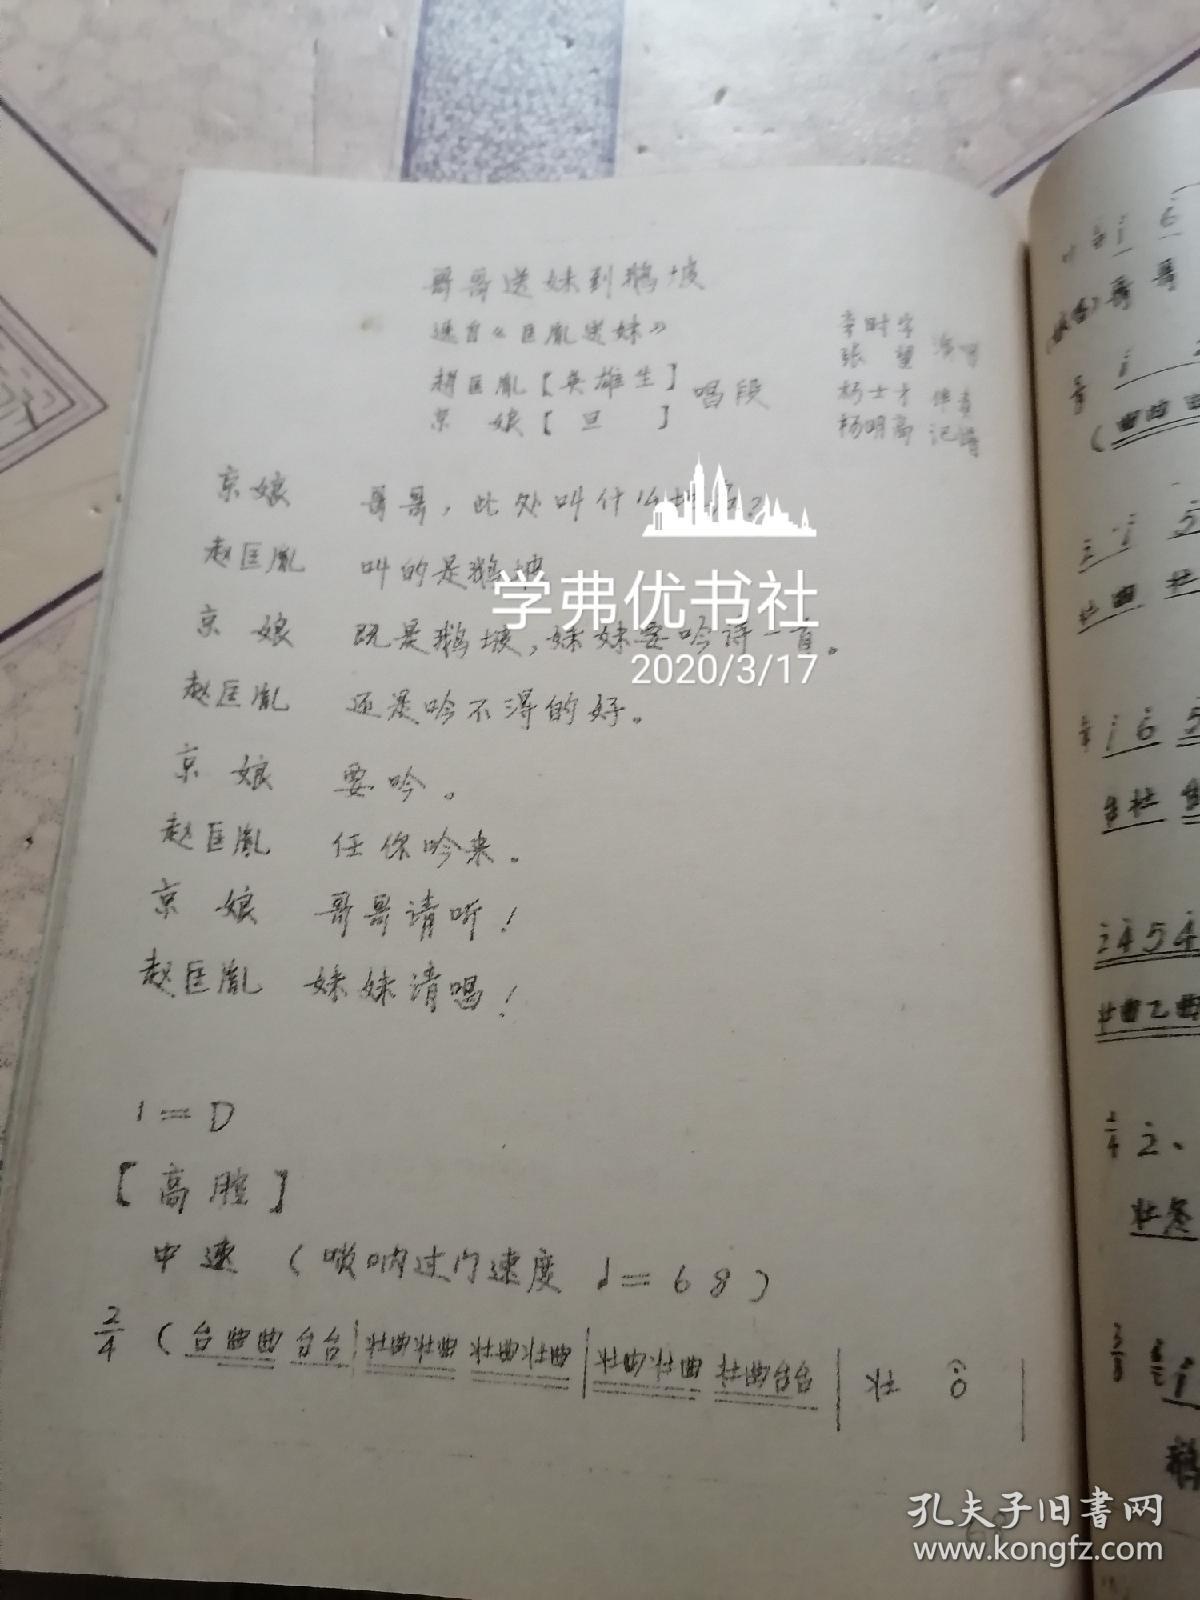 哥哥送妹到鹅坡
选自《匡胤送妹》
赵匡胤【英雄生】
京 娘【旦 】
唱段
李时宇
张 望 演唱
杨士才 伴奏
杨明高 记谱
京娘 哥哥，此处叫什么
赵匡胤 叫的是鹅坡
京 娘 既是鹅坡，妹妹要吟诗一首。
赵匡胤 还是吟不得的好。
京 娘 要吟。
赵匡胤 任你吟来。
京 娘 哥哥请听！
赵匡胤 妹妹请唱！
1=D
【高腔】
中速（唢呐过门速度 ♩=68）
2/4（台曲曲 台台|壮曲壮曲 壮曲壮曲|壮曲壮曲 壮曲台台|壮 0 |
学弗优书社
2020/3/17
孔夫子旧书网
www.kongfz.com
哥哥
2 4 5 4
壮曲乙曲